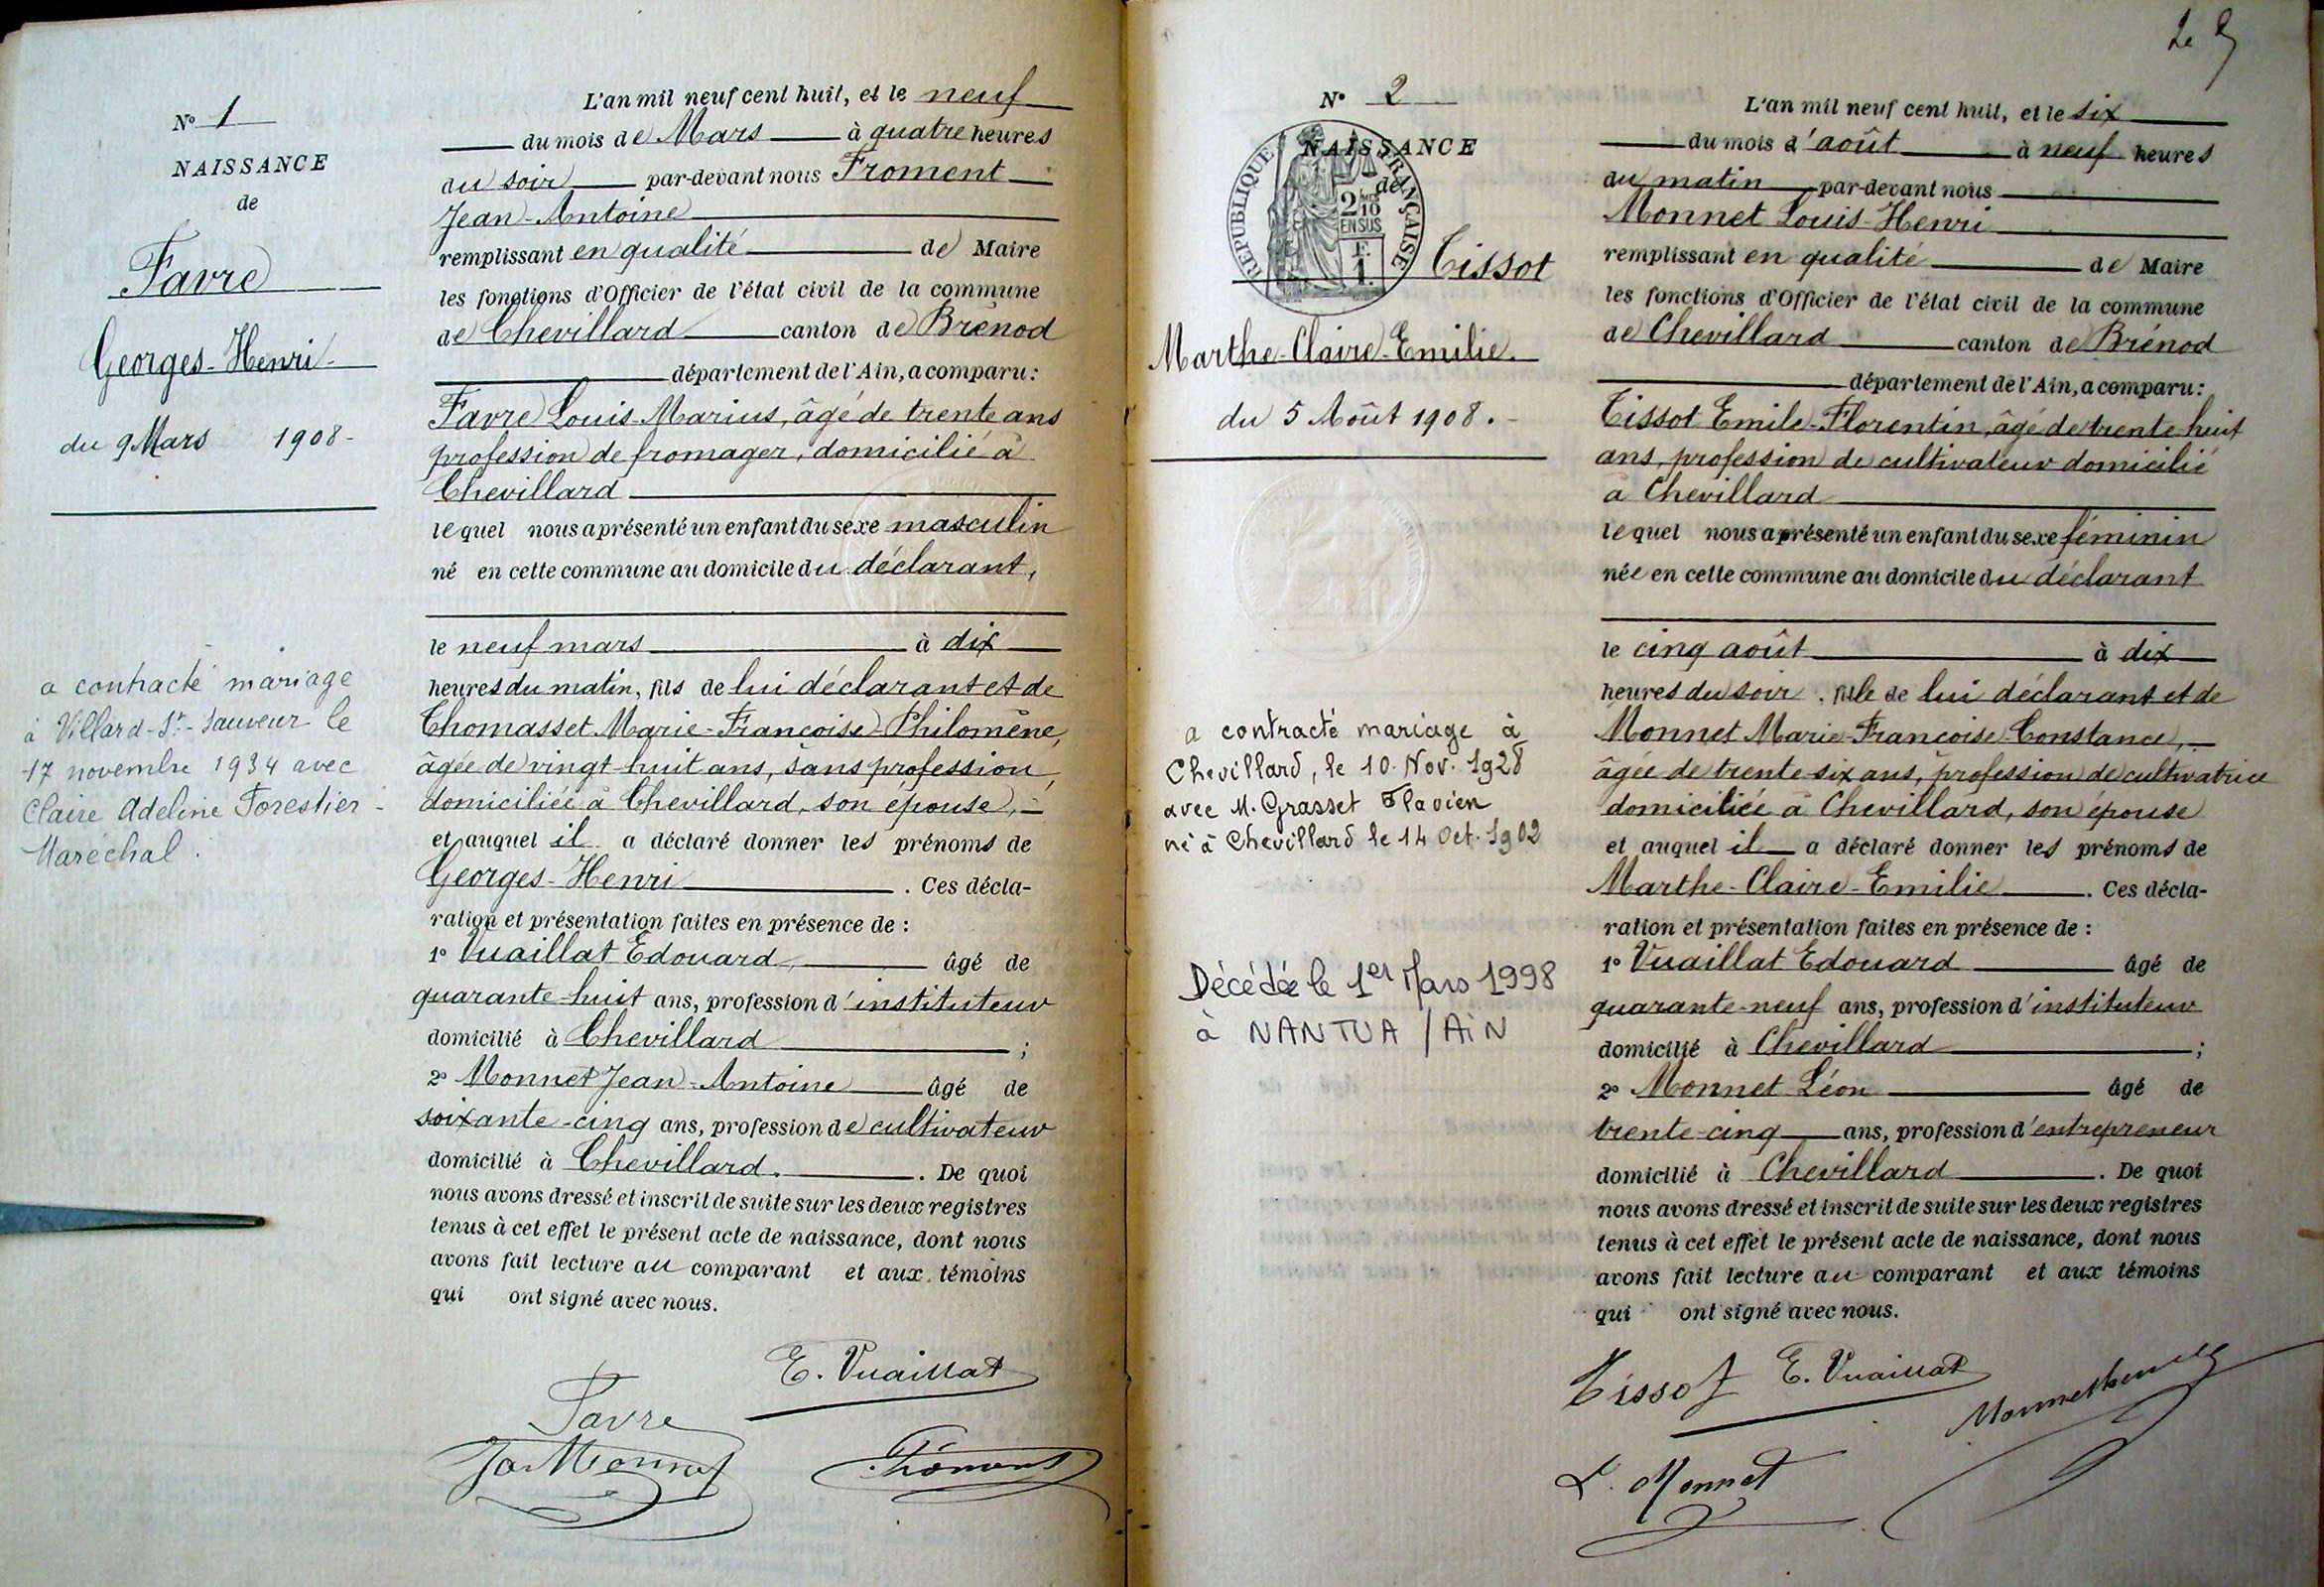 N° 1
NAISSANCE
de
Favre
Georges-Henri
du 9 Mars 1908-
a contracté mariage
à Villard-St-Sauveur le
17 novembre 1934 avec
Claire Adeline Forestier-
Maréchal.
L'an mil neuf cent huit, et le neuf
du mois de Mars à quatre heures
du soir par-devant nous Froment
Jean-Antoine
remplissant en qualité de Maire
les fonctions d'Officier de l'état civil de la commune
de Chevillard canton de Brénod
département de l'Ain, a comparu:
Favre Louis-Marius, âgé de trente ans
profession de fromager, domicilié à
Chevillard
lequel nous a présenté un enfant du sexe masculin
né en cette commune au domicile du déclarant,
le neuf mars à dix
heures du matin, fils de lui déclarant et de
Thomasset Marie-Françoise-Philomène,
âgée de vingt-huit ans, sans profession,
domiciliée à Chevillard, son épouse,
et auquel il a déclaré donner les prénoms de
Georges-Henri. Ces décla-
ration et présentation faites en présence de :
1° Vuaillat Edouard, âgé de
quarante-huit ans, profession d'instituteur
domicilié à Chevillard ;
2° Monnet Jean-Antoine âgé de
soixante-cinq ans, profession de cultivateur
domicilié à Chevillard. . De quoi
nous avons dressé et inscrit de suite sur les deux registres
tenus à cet effet le présent acte de naissance, dont nous
avons fait lecture au comparant et aux témoins
qui ont signé avec nous.
E. Vuaillat
Favre
Ja Monnet
Froment
N° 2
NAISSANCE
de
REPUBLIQUE FRANÇAISE
2/10
EN SUS
1
Tissot
Marthe-Claire-Emilie.
du 5 Août 1908.-
a contracté mariage à
Chevillard, le 10. Nov. 1928
avec M. Grasset Flavien
né à Chevillard le 14 Oct. 1902
Décédée le 1er Mars 1998
à NANTUA / AIN
L'an mil neuf cent huit, et le six
du mois d'août à neuf heures
du matin par-devant nous
Monnet Louis-Henri
remplissant en qualité de Maire
les fonctions d'Officier de l'état civil de la commune
de Chevillard canton de Brénod
département de l'Ain, a comparu:
Tissot Emile-Florentin, âgé de trente-huit
ans, profession de cultivateur domicilié
à Chevillard
lequel nous a présenté un enfant du sexe féminin
née en cette commune au domicile du déclarant
le cinq août à dix
heures du soir, fille de lui déclarant et de
Monnet Marie-Françoise-Constance,
âgée de trente-six ans, profession de cultivatrice
domiciliée à Chevillard, son épouse
et auquel il a déclaré donner les prénoms de
Marthe-Claire-Emilie. Ces décla-
ration et présentation faites en présence de :
1° Vuaillat Edouard âgé de
quarante-neuf ans, profession d'instituteur
domicilié à Chevillard ;
2° Monnet Léon âgé de
trente-cinq ans, profession d'entrepreneur
domicilié à Chevillard . De quoi
nous avons dressé et inscrit de suite sur les deux registres
tenus à cet effet le présent acte de naissance, dont nous
avons fait lecture au comparant et aux témoins
qui ont signé avec nous.
Tissot E. Vuaillat
L. Monnet